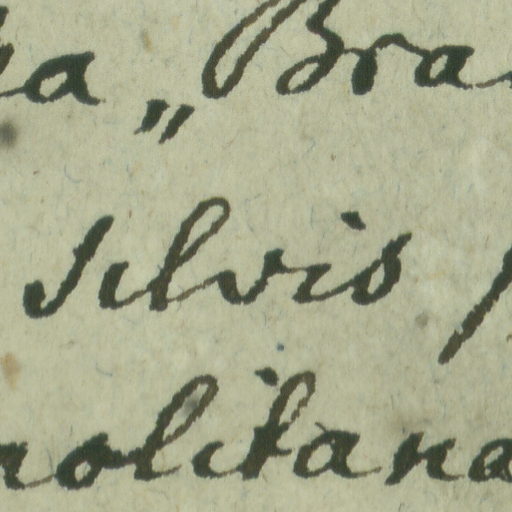 a „Bra
silvis
politana